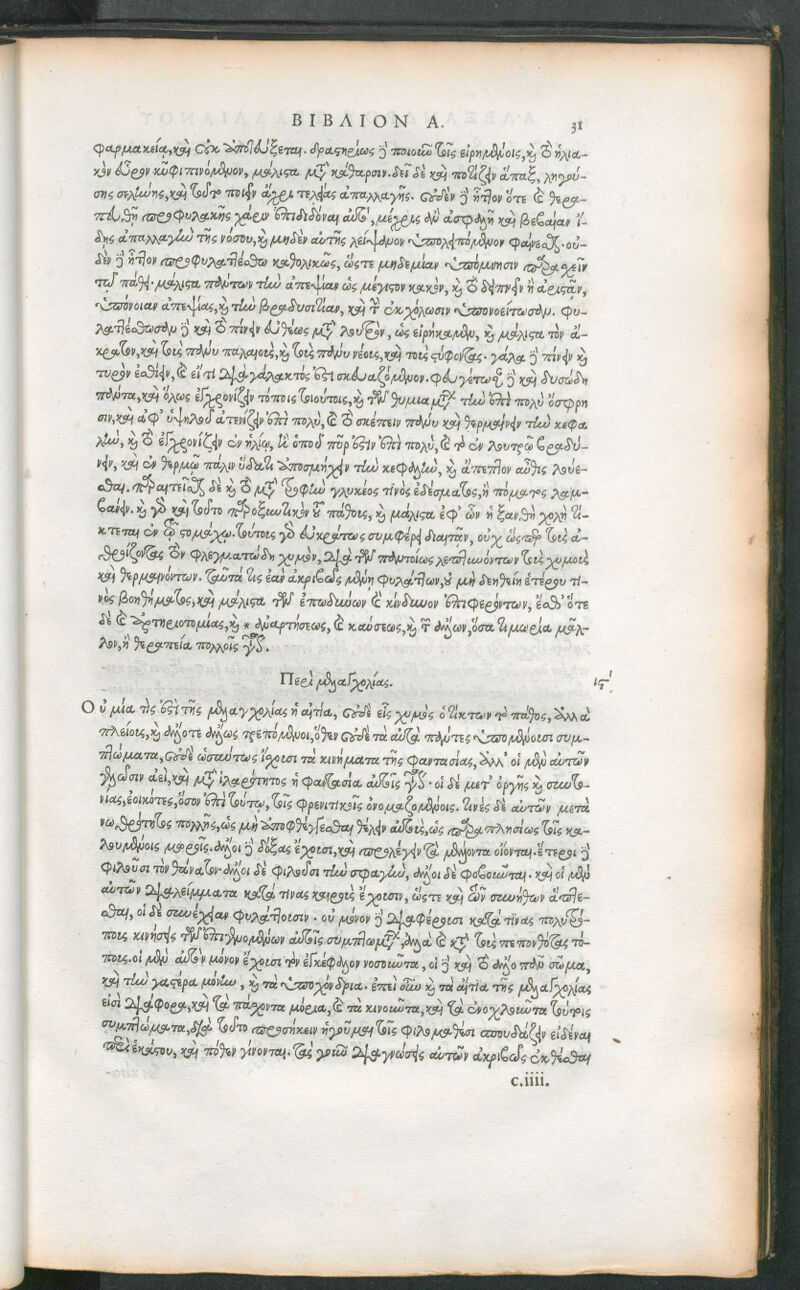 ΒΙΒΛΙΟΝ Α. 31
φαρμακεία, καὶ οὐκ ἀποτεύξεται. δραστηρίως δὲ ποιοῦσι τοῖς εἰρημένοις, καὶ τὸ ἡλια-
σης σελήνης, καὶ τοῦτο ποιεῖν ἄχρι τελείας ἀπαλλαγῆς. οὐδὲν δὲ ἧττον ὅτε καὶ θερα-
δῃς ἀπαλλαγὴν τῆς νόσου, καὶ μηδὲν αὐτῆς λείψανον ὑπολειπόμενον φαίνεσθαι. οὐ-
δὲν δὲ ἧττον προφυλαττέσθω καθολικῶς, ὥστε μηδεμίαν ὑπόμνησιν παρασχεῖν
τῷ πάθει. μάλιστα πάντων τὴν ἀπεψίαν ὡς μέγιστον κακὸν, καὶ τὸ δειπνεῖν ἢ ἀριστᾶν,
ὑπόνοιαν ἀπεψίας, καὶ τὴν βραδυσιτίαν, καὶ τὴν ἐκχόλωσιν ὑπονοείτωσαν. φυ-
λαττέσθωσαν δὲ καὶ τὸ πίνειν εὐθέως μετὰ λουτρὸν, ὡς εἰρήκαμεν, καὶ μάλιστα τὸν ἄ-
κρατον, καὶ τοῖς πάνυ παλαιοῖς, καὶ τοῖς πάνυ νέοις, καὶ τοῖς στύφοντας. γάλα δὲ πίνειν καὶ
τυρὸν ἐσθίειν, καὶ εἴ τι διὰ γάλακτός ἐστι σκευαζόμενον. φευγέτωσαν δὲ καὶ δυσώδη
πάντα, καὶ ὅλως ἐγχρονίζειν τόποις τοιούτοις, καὶ τῶν θυμιαμάτων τὴν ἐπὶ πολὺ ὄσφρη
σιν, καὶ ἀφ' ὑψηλοῦ ἀτενίζειν ἐπὶ πολὺ, καὶ τὸ σκέπειν πάνυ καὶ θερμαίνειν τὴν κεφα
λὴν, καὶ τὸ ἐγχρονίζειν ἐν ἡλίῳ, ἢ ὅπου πῦρ ἐστὶν ἐπὶ πολὺ, καὶ τὸ ἐν λουτρῷ βραδύ-
νειν, καὶ ἐν θερμῷ πάλιν ὕδατι ἀποσμήχειν τὴν κεφαλὴν, καὶ ἄπεπτον αὖθις λούε-
σθαι. παραιτεῖσθαι δὲ καὶ τὸ μετὰ τροφὴν γλυκέος τινὸς ἐδέσματος, ἢ πόματος λαμ-
βάνειν. καὶ γὰρ καὶ τοῦτο παροξυντικὸν τοῦ πάθους, καὶ μάλιστα ἐφ' ὧν ἡ ξανθὴ χολὴ τί-
κτεται ἐν τῷ στομάχῳ. τούτοις γὰρ εὐκράτως συμφέρει διαιτᾶν, οὐχ ὥσπερ τοῖς ἀ-
θροίζοντας τὸν φλεγματώδη χυμὸν, διὰ τῶν παντοίως λεπτυνόντων τοῖς χυμοῖς
καὶ θερμαινόντων. ταῦτά τις ἐὰν ἀκριβῶς μένῃ φυλάττων, οὐ μὴ δεηθείη ἑτέρου τι-
νὸς βοηθήματος, καὶ μάλιστα τῶν ἐπωδύνων καὶ κίνδυνον ἐπιφερόντων, ἔσθ' ὅτε
δὲ καὶ ἀρτηριοτομίας, καὶ * ἀναρτήσεως, καὶ καύσεως, καὶ τῶν ἄλλων, ὅσα τιμωρία μᾶλ-
λον, ἢ θεραπεία πολλοῖς γέγονε.
Περὶ μελαγχολίας. ιϛʹ
Οὐ μία τίς ἐστι τῆς μελαγχολίας ἡ αἰτία, οὐδὲ εἷς χυμὸς ὁ τίκτων τὸ πάθος, ἀλλὰ
πλείοις, καὶ ἄλλοτε ἄλλως τρεπόμενοι, ὅθεν οὐδὲ τὰ αὐτὰ πάντες ὑπομένουσι συμ-
πτώματα, οὐδὲ ὡσαύτως ἴσχουσι τὰ κινήματα τῆς φαντασίας, ἀλλ' οἱ μὲν αὐτῶν
γελῶσιν ἀεὶ, καὶ μετὰ ἱλαρότητος ἡ φαντασία αὐτοῖς γίνεται. οἱ δὲ μετ' ὀργῆς καὶ συντο-
νίας, ἐοικότες, ὅσον ἐπὶ τούτῳ, τοῖς φρενιτικοῖς ὀνομαζομένοις. τινὲς δὲ αὐτῶν μετὰ
νωθρότητος πολλῆς, ὡς μὴ ἀποφθέγγεσθαι θέλειν αὐτοὺς, ὡς παραπλησίως τοῖς κα-
λουμένοις μωροῖς. ἄλλοι δὲ δόξας ἔχουσι, καὶ προλέγειν τὰ μέλλοντα οἴονται. ἕτεροι δὲ
φιλοῦσι τὸν θάνατον. ἄλλοι δὲ φιλοῦσι τὴν σφαγὴν, ἄλλοι δὲ φοβοῦνται. καὶ οἱ μὲν
αὐτῶν διαλείμματα κατά τινας καιροὺς ἔχουσιν, ὥστε καὶ τῶν συνήθων ἅπτε-
σθαι, οἱ δὲ συνέχειαν φυλάττουσιν. οὐ μόνον δὲ διαφέρουσι κατά τινας πολυτρό-
ποις κινήσεις τῶν ἐπιγενομένων αὐτοῖς συμπτωμάτων, ἀλλὰ καὶ κατὰ τοὺς πεπονθότας τό-
ποις. οἱ μὲν αὐτὸν μόνον ἔχουσι τὸν ἐγκέφαλον νοσοῦντα, οἱ δὲ καὶ τὸ ἄλλο πᾶν σῶμα,
καὶ τὴν γαστέρα μόνην, καὶ τὰ ὑποχόνδρια. ἐπεὶ οὖν καὶ τὰ αἴτια τῆς μελαγχολίας
εἰσὶ διάφορα, καὶ τὰ πάσχοντα μόρια, καὶ τὰ κινοῦντα, καὶ τὰ ἐνοχλοῦντα τούτοις
συμπτώματα, διὰ τοῦτο προσήκειν ἡγοῦμαι τοῖς φιλομαθέσι σπουδάζειν εἰδέναι
περὶ ἑκάστου, καὶ πόθεν γίνονται. τὰς γοῦν διαγνώσεις αὐτῶν ἀκριβῶς ἐκθέσθαι
c.iiii.